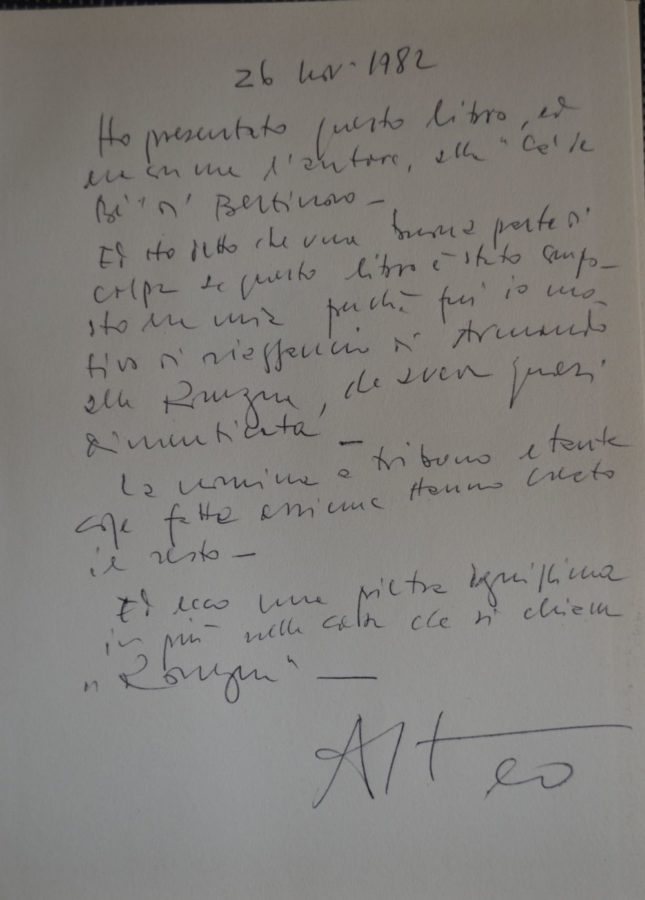 26 nov. 1982
Ho presentato questo libro, ed
insieme l'autore, alla "Ca' de
Bé" di Bertinoro –
Ed ho detto che una buona parte di
colpa se questo libro è stato compo–
sto è mia perché fui io mo–
tivo di riaggancio di Armando
alla Romagna, che aveva quasi
dimenticata –
La nomina a tribuno e tante
cose fatte assieme hanno creato
il resto –
Ed ecco una pietra dignissima
in più nella casa che si chiama
"Romagna" —
Alteo